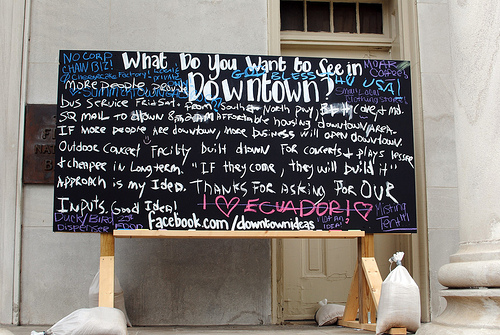 NO CORP.
CHAIN BIZ!
What Do You Want to See in
MOAR
COFFEE!
Downtown?
GOD BLESS
USA!
Cheesecake Factory!
more people
Small Local
Clothing stores!
bus service Fri & Sat. from South + North Dev,
SQ mall to dtown affordable housing downtown area.
IF more people are downtown, more business will open downtown.
Outdoor Concert Facility built dtown for concerts & plays
+ cheaper in long term. "IF they come, they will build it"
Approach is my Idea. THANKS FOR ASKING FOR OUR
Inputs, Good Idea!
I ♡ ECUADOR! ♡
Duck/Bird
Dispenser
FOOD
facebook.com/downtownideas
"Not an
idea"
Misting
Tent!!